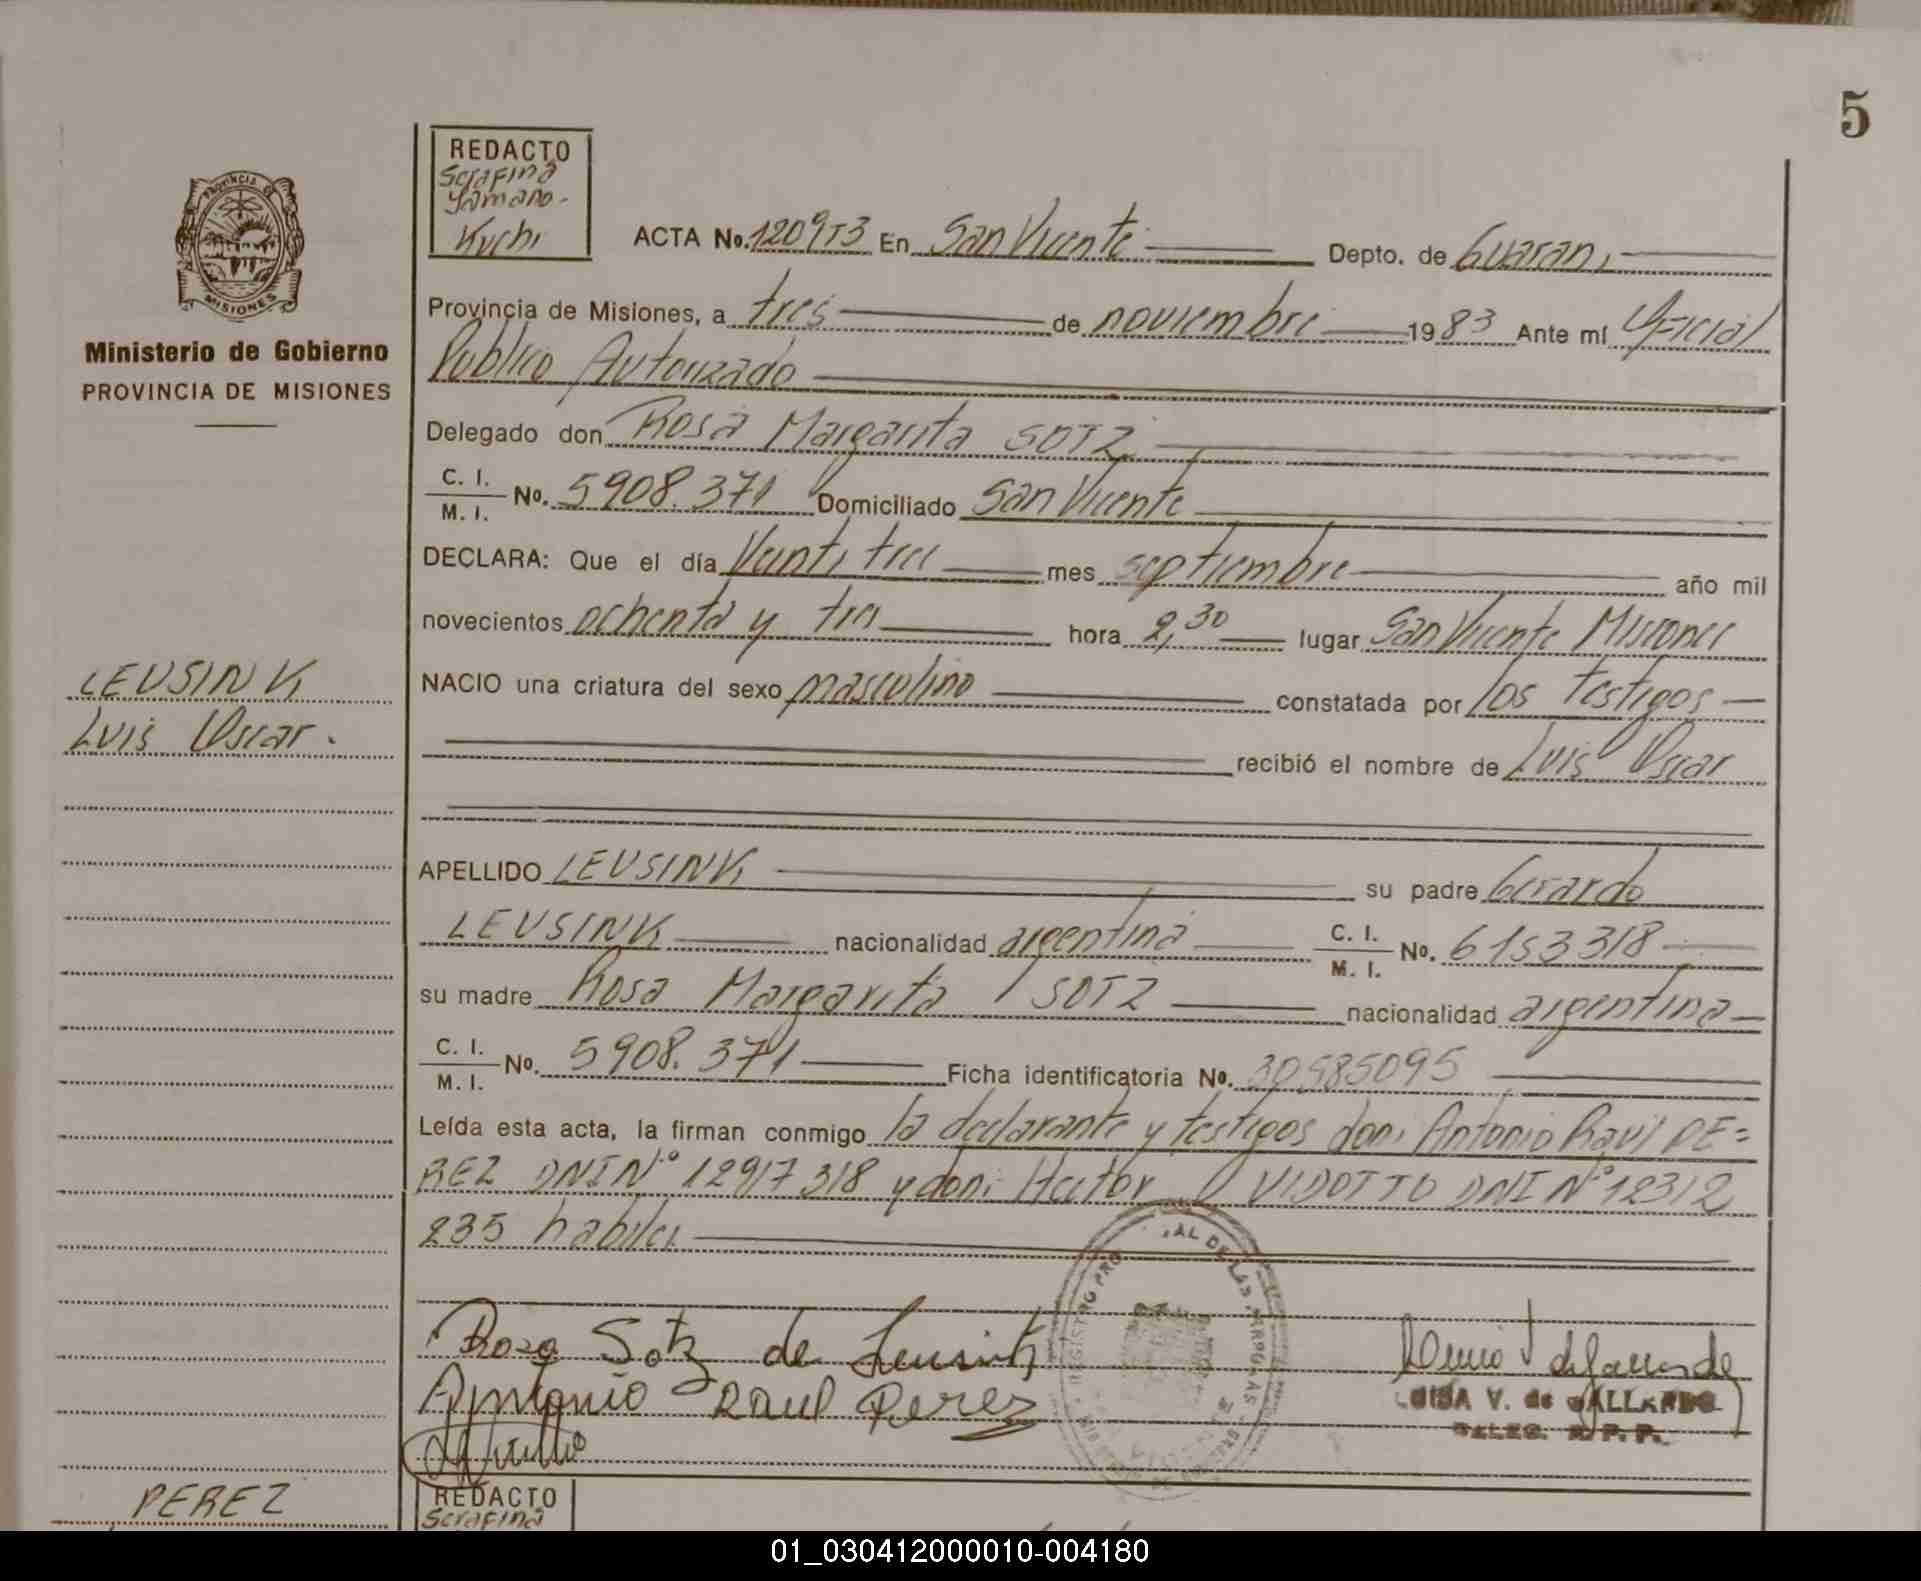 5
REDACTO
Serafina
Yamano-
Kuchi
PROVINCIA DE
MISIONES
Ministerio de Gobierno
PROVINCIA DE MISIONES
ACTA No. 1209T3 En San Vicente Depto. de Guarani
Provincia de Misiones, a tres de noviembre 1983 Ante mí Oficial
Publico Autorizado
Delegado don Rosa Margarita SOTZ
C. I.
M. I. No. 5908.371 Domiciliado San Vicente
DECLARA: Que el día Veinti tres mes septiembre año mil
novecientos ochenta y tres hora 2,30 lugar San Vicente Misiones
LEUSINK
NACIO una criatura del sexo masculino constatada por los testigos
Luis Oscar.
recibió el nombre de Luis Oscar
APELLIDO LEUSINK su padre Gerardo
LEUSINK nacionalidad argentina C. I.
M. I. No. 6153318
su madre Rosa Margarita SOTZ nacionalidad argentina
C. I.
M. I. No. 5908.371 Ficha identificatoria No. 30585095
Leída esta acta, la firman conmigo la declarante y testigos don: Antonio Raul PE=
REZ DNI N° 12917318 y don: Hector VIDOTTO DNI N° 12312
235 habiles
Rosa Sotz de Leusink
Antonio RAUL Perez
LUISA V. de GALLARDO
DELEG. R. P. P.
PEREZ
REDACTO
Serafina
01_030412000010-004180